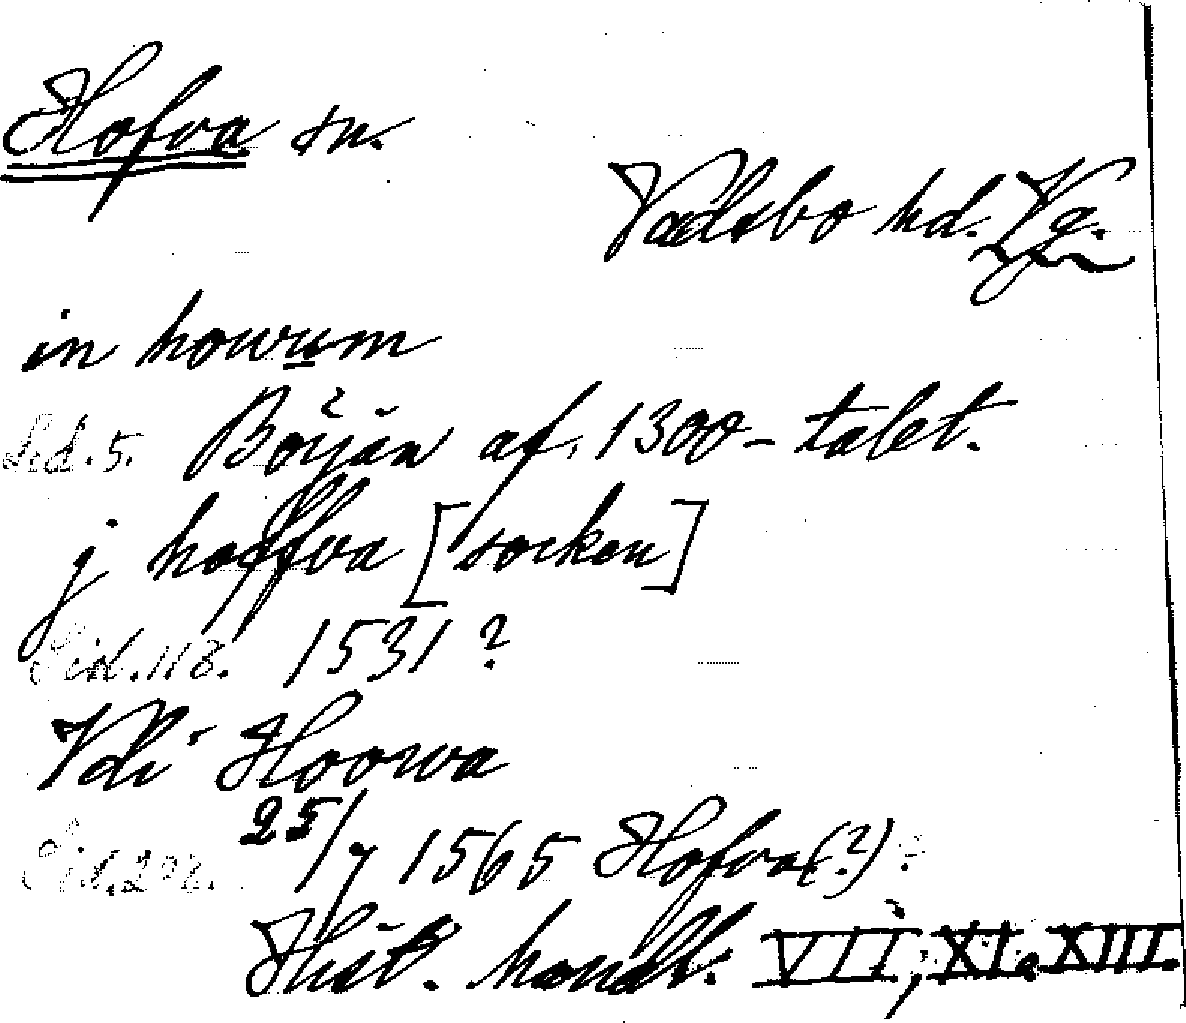 Hofva sn.
Vadsbo hd. Vg.
in howum
Sid. 5. Början af 1300-talet.
j hoffva [socken]
Sid. 118. 1531?
Vdi Hoowa
Sid. 292. 25/7 1565 Hofva(?)?
Hist. handl. VII, XI o XIII.